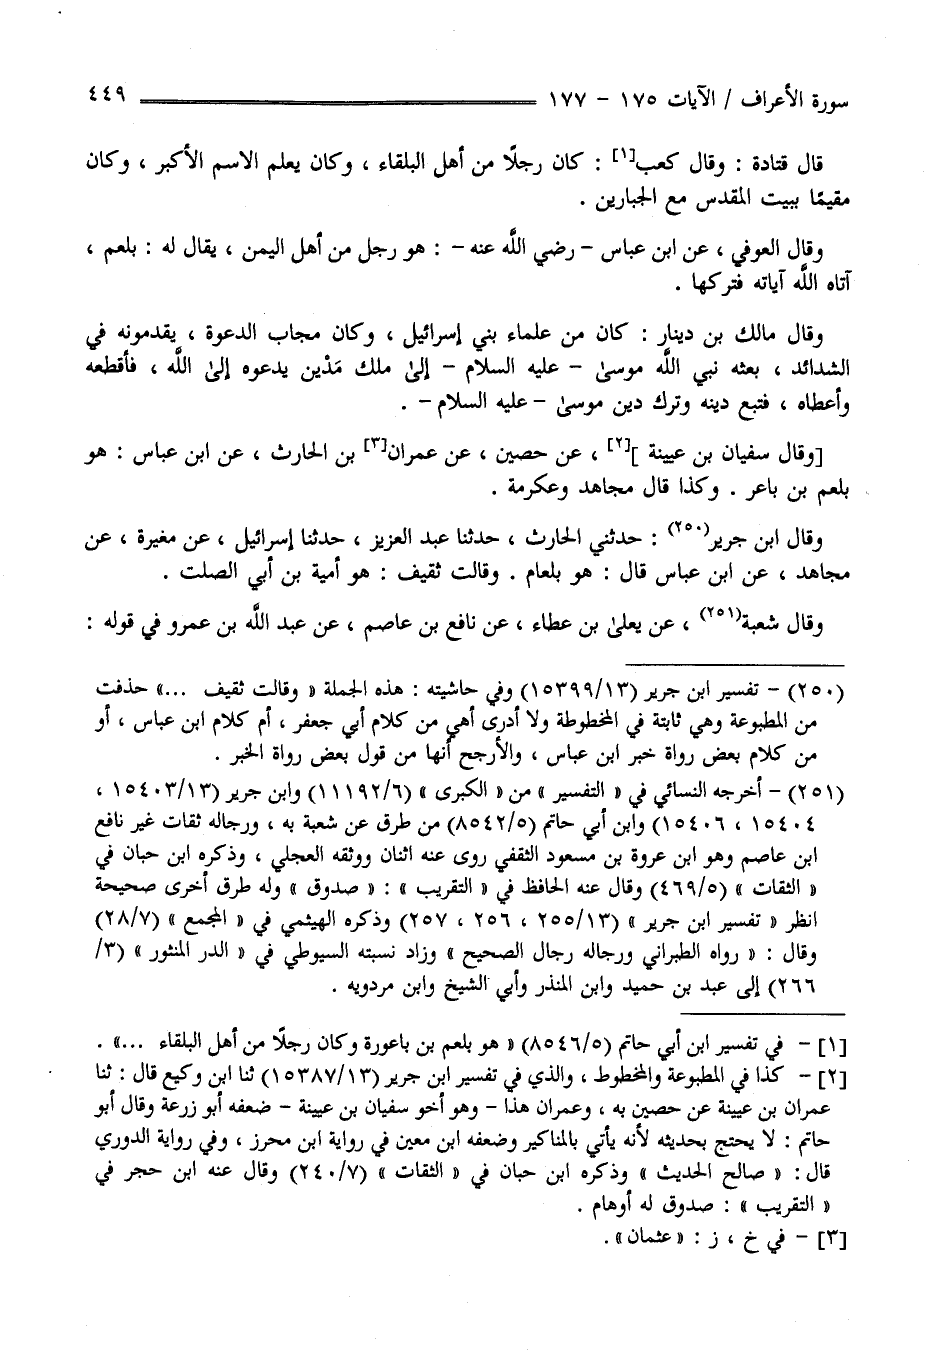 سورة الأعراف / الآيات ١٧٥ - ١٧٧ ٤٤٩
قال قتادة : وقال كعب[١] : كان رجلًا من أهل البلقاء ، وكان يعلم الاسم الأكبر ، وكان
مقيمًا ببيت المقدس مع الجبارين .
وقال العوفي ، عن ابن عباس - رضي اللَّه عنه - : هو رجل من أهل اليمن ، يقال له : بلعم ،
آتاه اللَّه آياته فتركها .
وقال مالك بن دينار : كان من علماء بني إسرائيل ، وكان مجاب الدعوة ، يقدمونه في
الشدائد ، بعثه نبي اللَّه موسىٰ - عليه السلام - إلىٰ ملك مَدْين يدعوه إلىٰ اللَّه ، فأقطعه
وأعطاه ، فتبع دينه وترك دين موسىٰ - عليه السلام - .
[وقال سفيان بن عيينة ][٢] ، عن حصين ، عن عمران[٣] بن الحارث ، عن ابن عباس : هو
بلعم بن باعر . وكذا قال مجاهد وعكرمة .
وقال ابن جرير(٢٥٠) : حدثني الحارث ، حدثنا عبد العزيز ، حدثنا إسرائيل ، عن مغيرة ، عن
مجاهد ، عن ابن عباس قال : هو بلعام . وقالت ثقيف : هو أمية بن أبي الصلت .
وقال شعبة(٢٥١) ، عن يعلىٰ بن عطاء ، عن نافع بن عاصم ، عن عبد اللَّه بن عمرو في قوله :
(٢٥٠) - تفسير ابن جرير (١٥٣٩٩/١٣) وفي حاشيته : هذه الجملة « وقالت ثقيف ...» حذفت
من المطبوعة وهي ثابتة في المخطوطة ولا أدرى أهي من كلام أبي جعفر ، أم كلام ابن عباس ، أو
من كلام بعض رواة خبر ابن عباس ، والأرجح أنها من قول بعض رواة الخبر .
(٢٥١) - أخرجه النسائي في « التفسير » من « الكبرى » (١١١٩٢/٦) وابن جرير (١٥٤٠٣/١٣ ،
١٥٤٠٤ ، ١٥٤٠٦) وابن أبي حاتم (٨٥٤٢/٥) من طرق عن شعبة به ، ورجاله ثقات غير نافع
ابن عاصم وهو ابن عروة بن مسعود الثقفي روى عنه اثنان ووثقه العجلي ، وذكره ابن حبان في
« الثقات » (٤٦٩/٥) وقال عنه الحافظ في « التقريب » : « صدوق » وله طرق أخرى صحيحة
انظر « تفسير ابن جرير » (٢٥٥/١٣ ، ٢٥٦ ، ٢٥٧) وذكره الهيثمي في « المجمع » (٢٨/٧)
وقال : « رواه الطبراني ورجاله رجال الصحيح » وزاد نسبته السيوطي في « الدر المنثور » (٣/
٢٦٦) إلى عبد بن حميد وابن المنذر وأبي الشيخ وابن مردويه .
[١] - في تفسير ابن أبي حاتم (٨٥٤٦/٥) « هو بلعم بن باعورة وكان رجلًا من أهل البلقاء ...» .
[٢] - كذا في المطبوعة والمخطوط ، والذي في تفسير ابن جرير (١٥٣٨٧/١٣) ثنا ابن وكيع قال : ثنا
عمران بن عيينة عن حصين به ، وعمران هذا - وهو أخو سفيان بن عيينة - ضعفه أبو زرعة وقال أبو
حاتم : لا يحتج بحديثه لأنه يأتي بالمناكير وضعفه ابن معين في رواية ابن محرز ، وفي رواية الدوري
قال : « صالح الحديث » وذكره ابن حبان في « الثقات » (٢٤٠/٧) وقال عنه ابن حجر في
« التقريب » : صدوق له أوهام .
[٣] - في خ ، ز : « عثمان» .